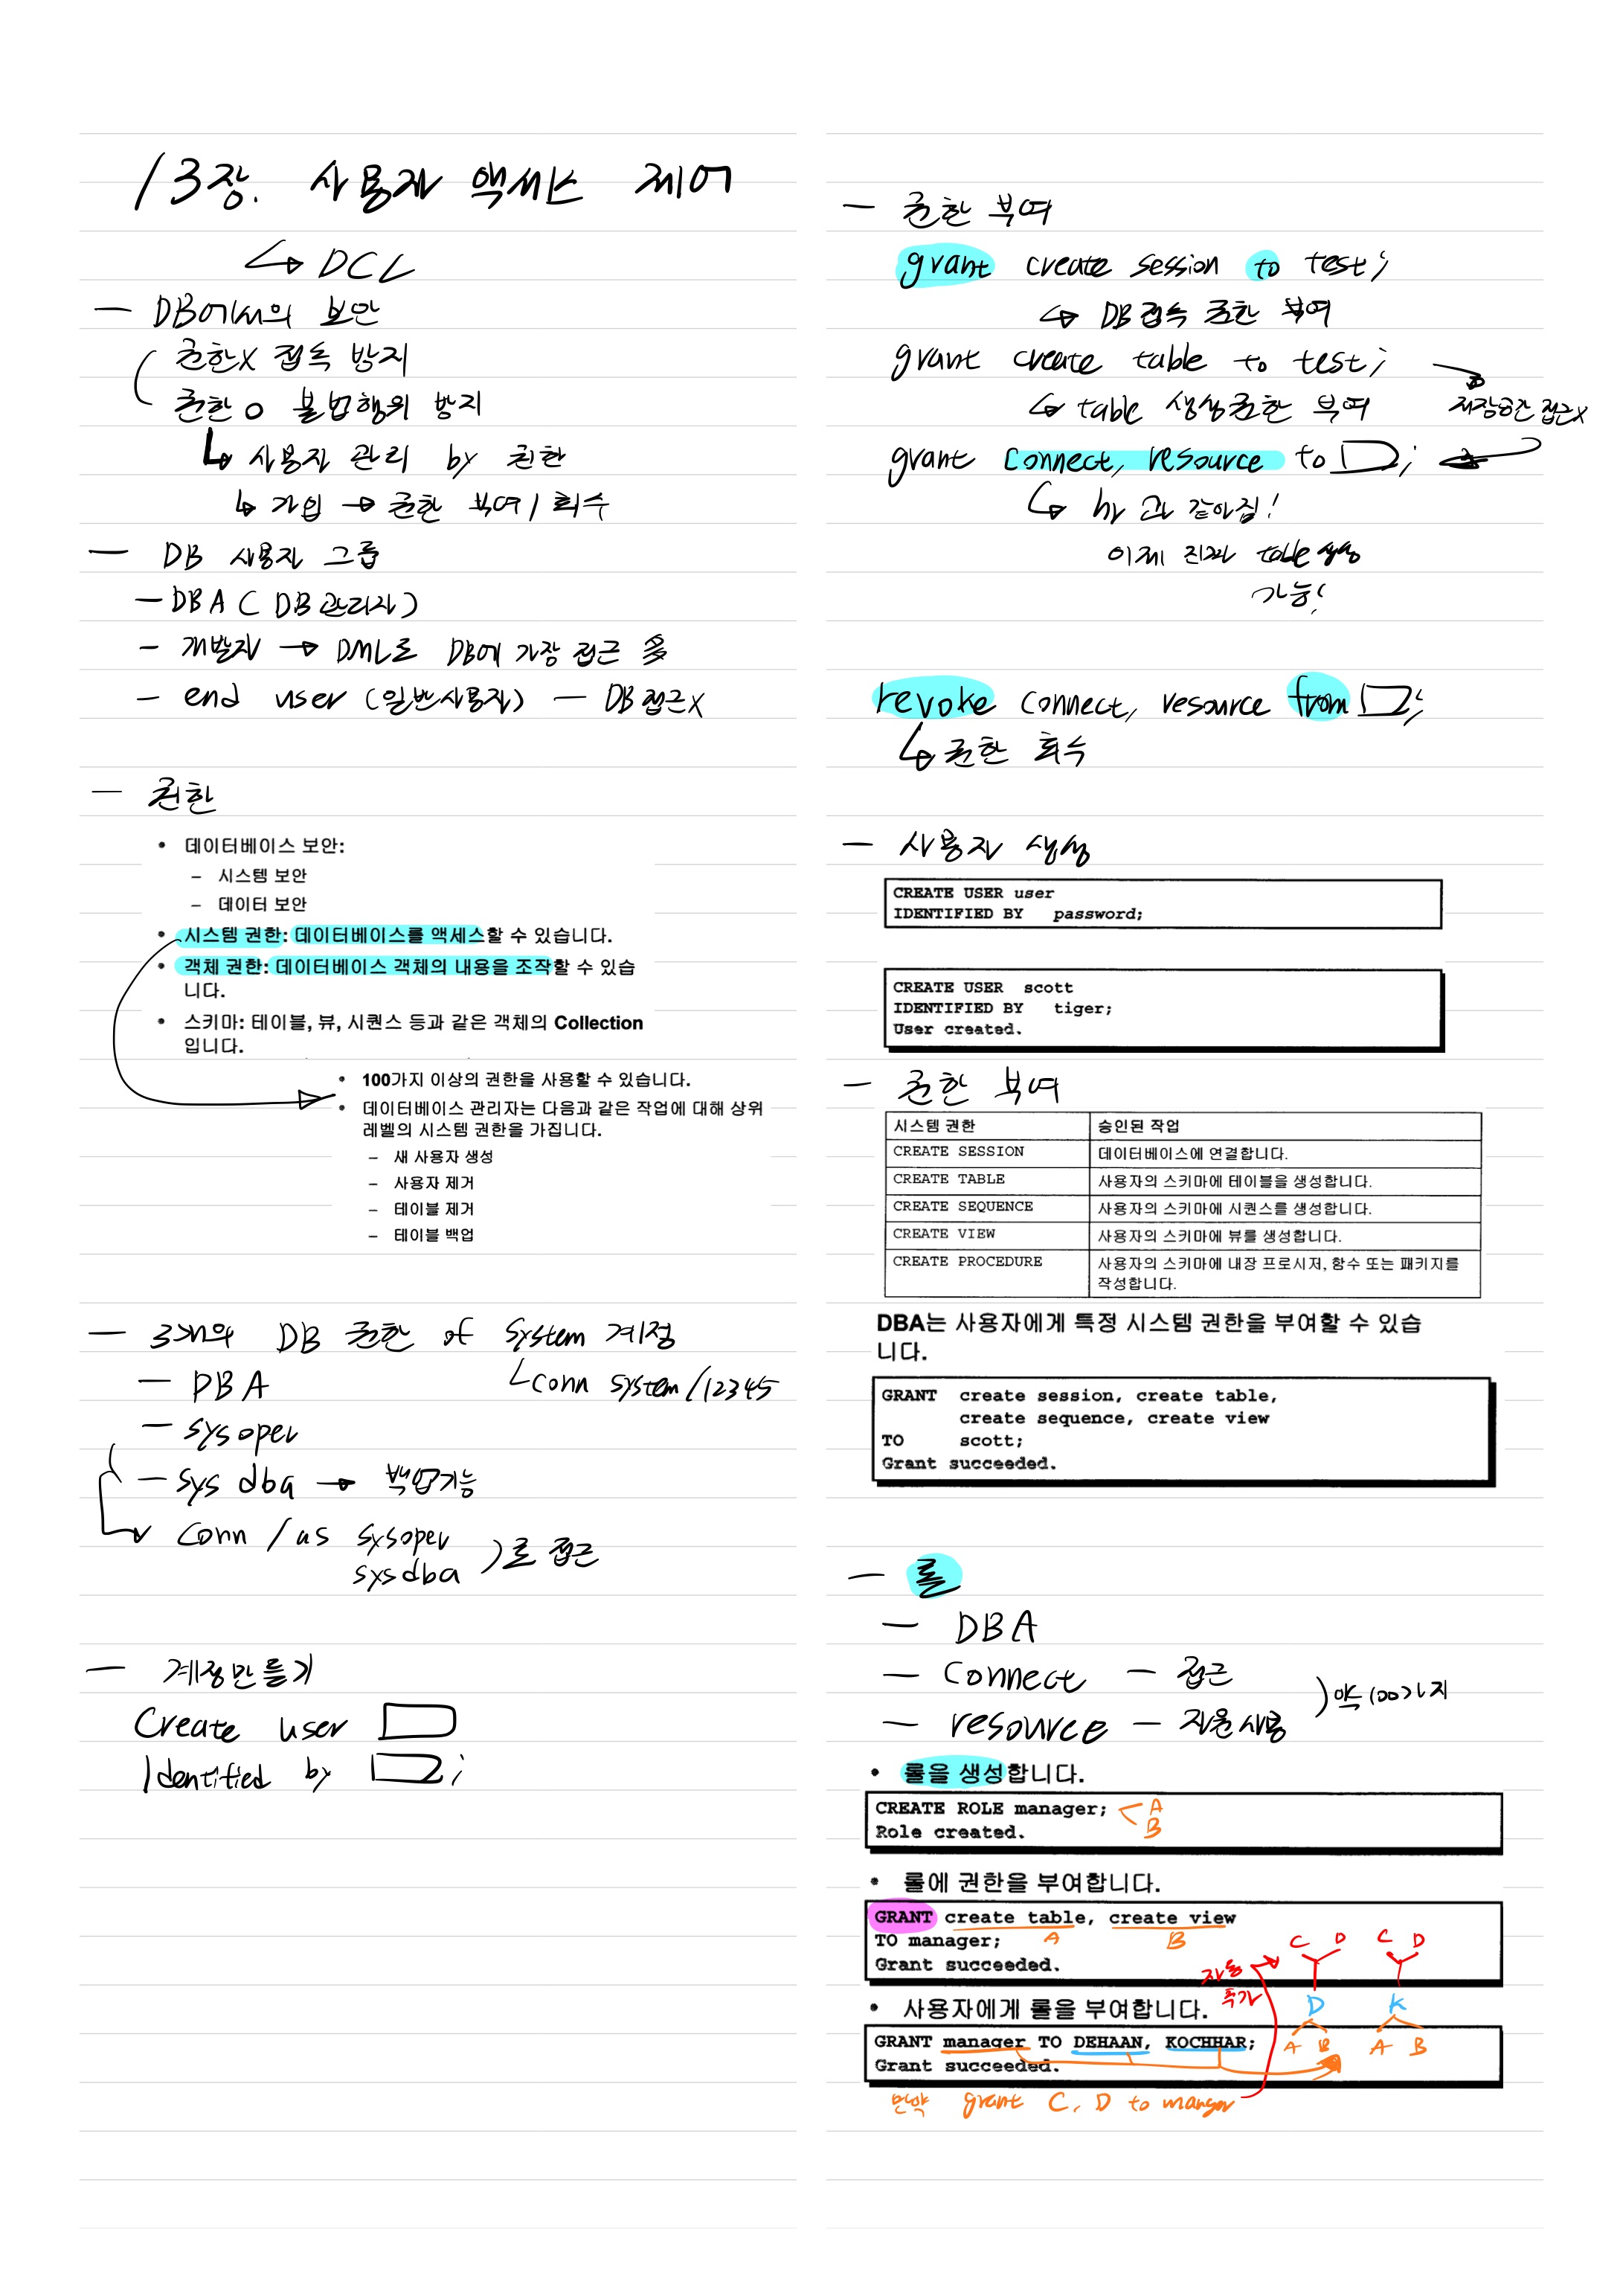 13장. 사용자 액세스 제어
↳ DCL
— DB에서의 보안
권한X 접속 방지
권한O 불법행위 방지
↳ 사용자 관리 by 권한
↳ 가입 → 권한 부여/회수
— DB 사용자 그룹
— DBA ( DB관리자 )
- 개발자 → DML로 DB에 가장 접근 多
- end user (일반사용자) — DB접근X
— 권한
• 데이터베이스 보안:
– 시스템 보안
– 데이터 보안
• 시스템 권한: 데이터베이스를 액세스할 수 있습니다.
• 객체 권한: 데이터베이스 객체의 내용을 조작할 수 있습
니다.
• 스키마: 테이블, 뷰, 시퀀스 등과 같은 객체의 Collection
입니다.
• 100가지 이상의 권한을 사용할 수 있습니다.
• 데이터베이스 관리자는 다음과 같은 작업에 대해 상위
레벨의 시스템 권한을 가집니다.
– 새 사용자 생성
– 사용자 제거
– 테이블 제거
– 테이블 백업
— 3개의 DB 권한 of system 계정
— DBA
conn system/12345
— sysoper
— sys dba → 백업가능
conn /as sysoper
sysdba )로 접근
— 계정만들기
Create user
Identified by ;
— 권한 부여
grant create session to test;
↳ DB접속 권한 부여
grant create table to test;
↳ table 생성권한 부여
저장공간 접근X
grant connect, resource to ;
↳ hr 과 같아짐!
이제 진짜 table생성
가능!
revoke connect, resource from ;
↳ 권한 회수
— 사용자 생성
CREATE USER user
IDENTIFIED BY password;
CREATE USER scott
IDENTIFIED BY tiger;
User created.
— 권한 부여
시스템 권한 승인된 작업
CREATE SESSION 데이터베이스에 연결합니다.
CREATE TABLE 사용자의 스키마에 테이블을 생성합니다.
CREATE SEQUENCE 사용자의 스키마에 시퀀스를 생성합니다.
CREATE VIEW 사용자의 스키마에 뷰를 생성합니다.
CREATE PROCEDURE 사용자의 스키마에 내장 프로시저, 함수 또는 패키지를
작성합니다.
DBA는 사용자에게 특정 시스템 권한을 부여할 수 있습
니다.
GRANT create session, create table,
create sequence, create view
TO scott;
Grant succeeded.
— 롤
— DBA
— connect — 접근
— resource — 자원사용
)약 100가지
• 롤을 생성합니다.
CREATE ROLE manager; A
B
Role created.
• 롤에 권한을 부여합니다.
GRANT create table, create view
A B
TO manager;
Grant succeeded.
C D C D
자동
추가
D K
A B A B
• 사용자에게 롤을 부여합니다.
GRANT manager TO DEHAAN, KOCHHAR;
Grant succeeded.
만약 grant C, D to manger